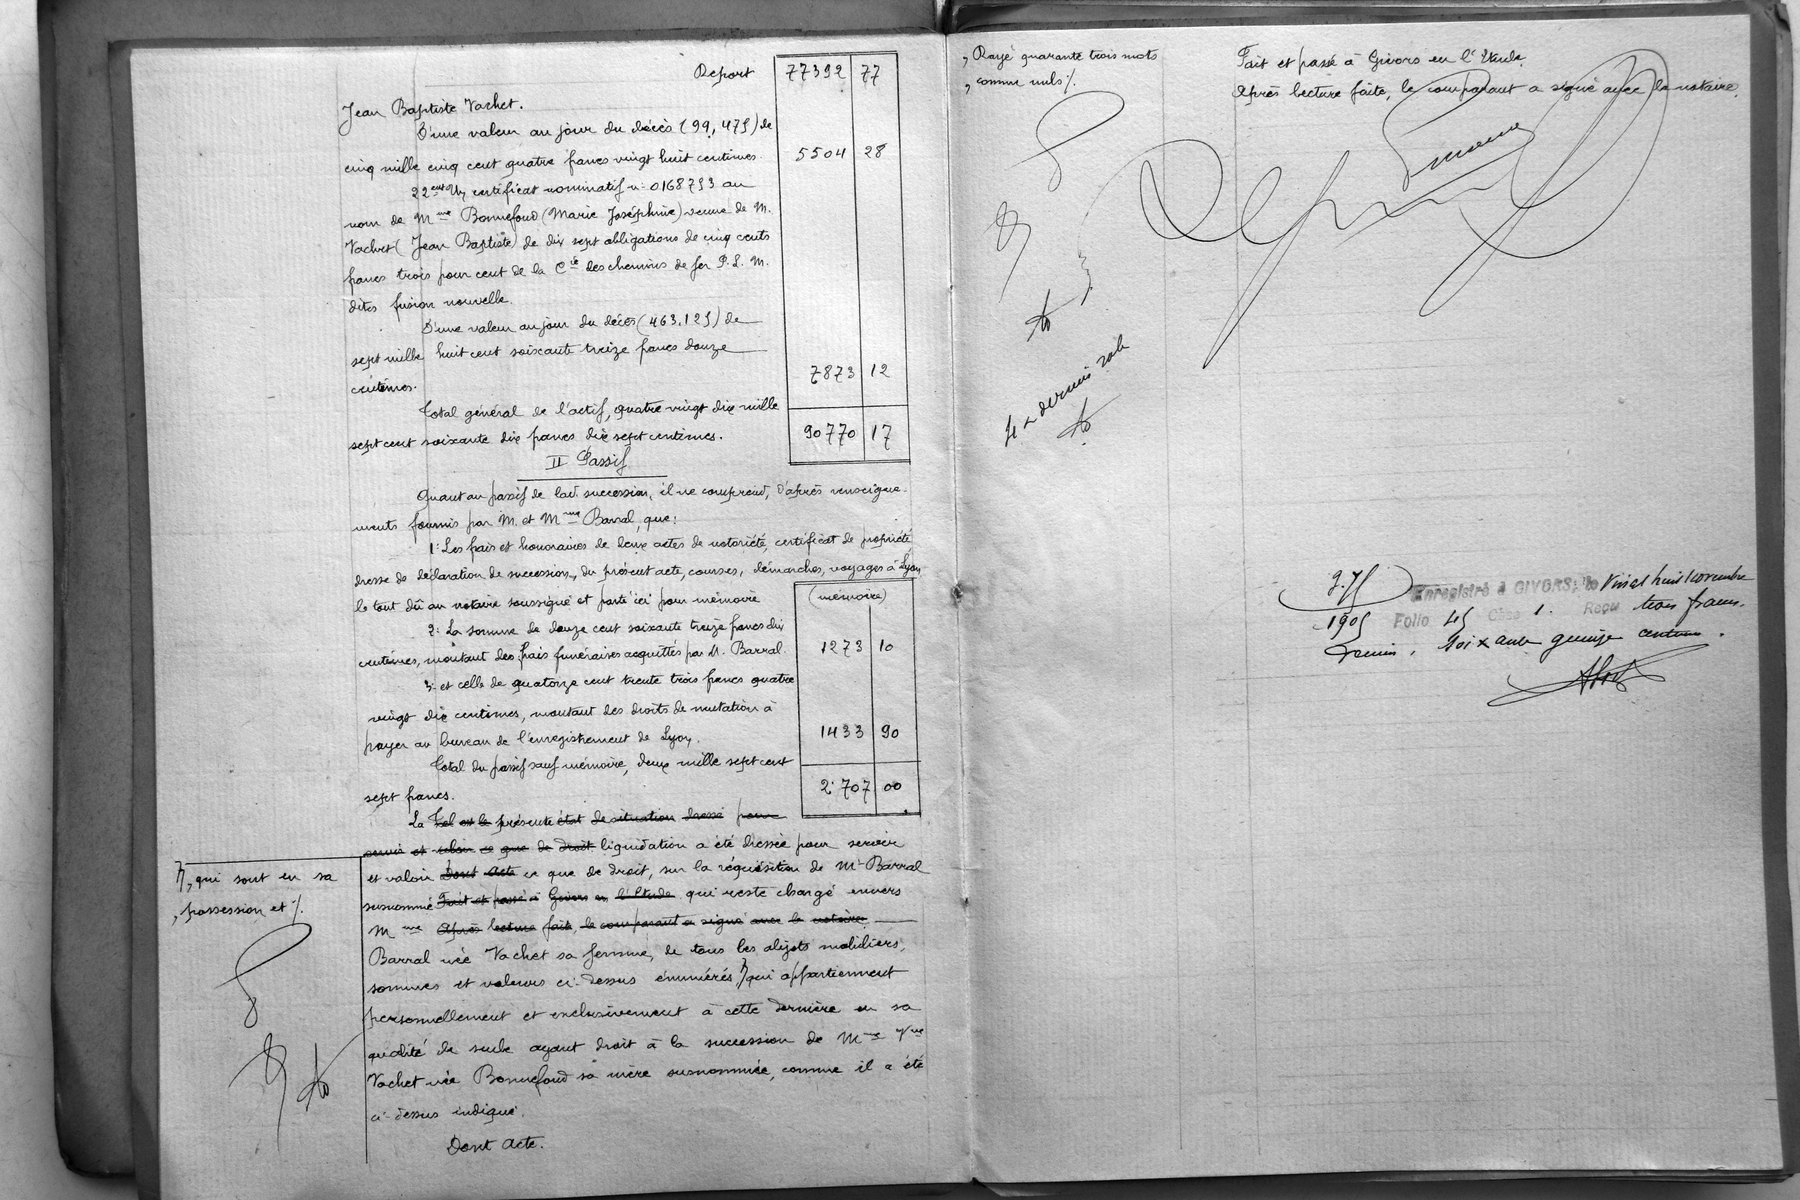 Report 77392 77
Jean Baptiste Vachet.
D'une valeur au jour du décès (99,475) de
cinq mille cinq cent quatre francs vingt huit centimes 5504 28
22ent Un certificat nominatif n: 0168753 au
nom de Mme Bonnefond (Marie Joséphine) veuve de M.
Vachet (Jean Baptiste) de dix sept obligations de cinq cents
francs trois pour cent de la Cie des chemins de fer P. L. M.
dites fusion nouvelle.
D'une valeur au jour du décès (463,125) de
sept mille huit cent soixante treize francs douze
centimes. 7873 12
Total général de l'actif, quatre vingt dix mille
sept cent soixante dix francs dix sept centimes. 90770 17
II Passif
Quant au passif de lad. succession, il ne comprend, d'après renseigne-
ments fournis par M. et Mme Barral, que:
1: Les frais et honoraires de deux actes de notoriété, certificat de propriété
dresse de déclaration de succession, du présent acte, courses, démarches, voyages à Lyon
le tout dû au notaire soussigné et porté ici pour mémoire (mémoire)
2: La somme de douze cent soixante treize francs dix
centimes, montant des frais funéraires acquittés par M. Barral 1273 10
3: et celle de quatorze cent trente trois francs quatre
vingt dix centimes, montant des droits de mutation à
payer au bureau de l'enregistrement de Lyon. 1433 90
Total du passif sauf mémoire, deux mille sept cent
sept francs. 2.707 00
La Tel est le présente état de situation dressé pour
servir et valoir ce que de droit liquidation a été dressée pour servir
et valoir Dont Acte ce que de droit, sur la réquisition de Mr Barral
susnommé Fait et passé à Givors en l'Etude qui reste chargé envers
Mme Après lecture faite, le comparant a signé avec le notaire
Barral née Vachet sa femme, de tous les objets mobiliers,
sommes et valeurs ci-dessus énumérés, qui appartiennent
personnellement et exclusivement à cette dernière en sa
qualité de seule ayant droit à la succession de Mme Vve
Vachet née Bonnefond sa mère susnommée, comme il a été
ci-dessus indiqué.
Dont Acte.
, qui sont en sa
, possession et /.
, Rayé quarante trois mots
, comme nuls /.
Fait et passé à Givors en l'Etude
Après lecture faite, le comparant a signé avec le notaire.
3.75
1905
Enregistré à GIVORS, le Vingt huit novembre
Folio 45 Case 1. Reçu trois francs
soixante quinze centimes.